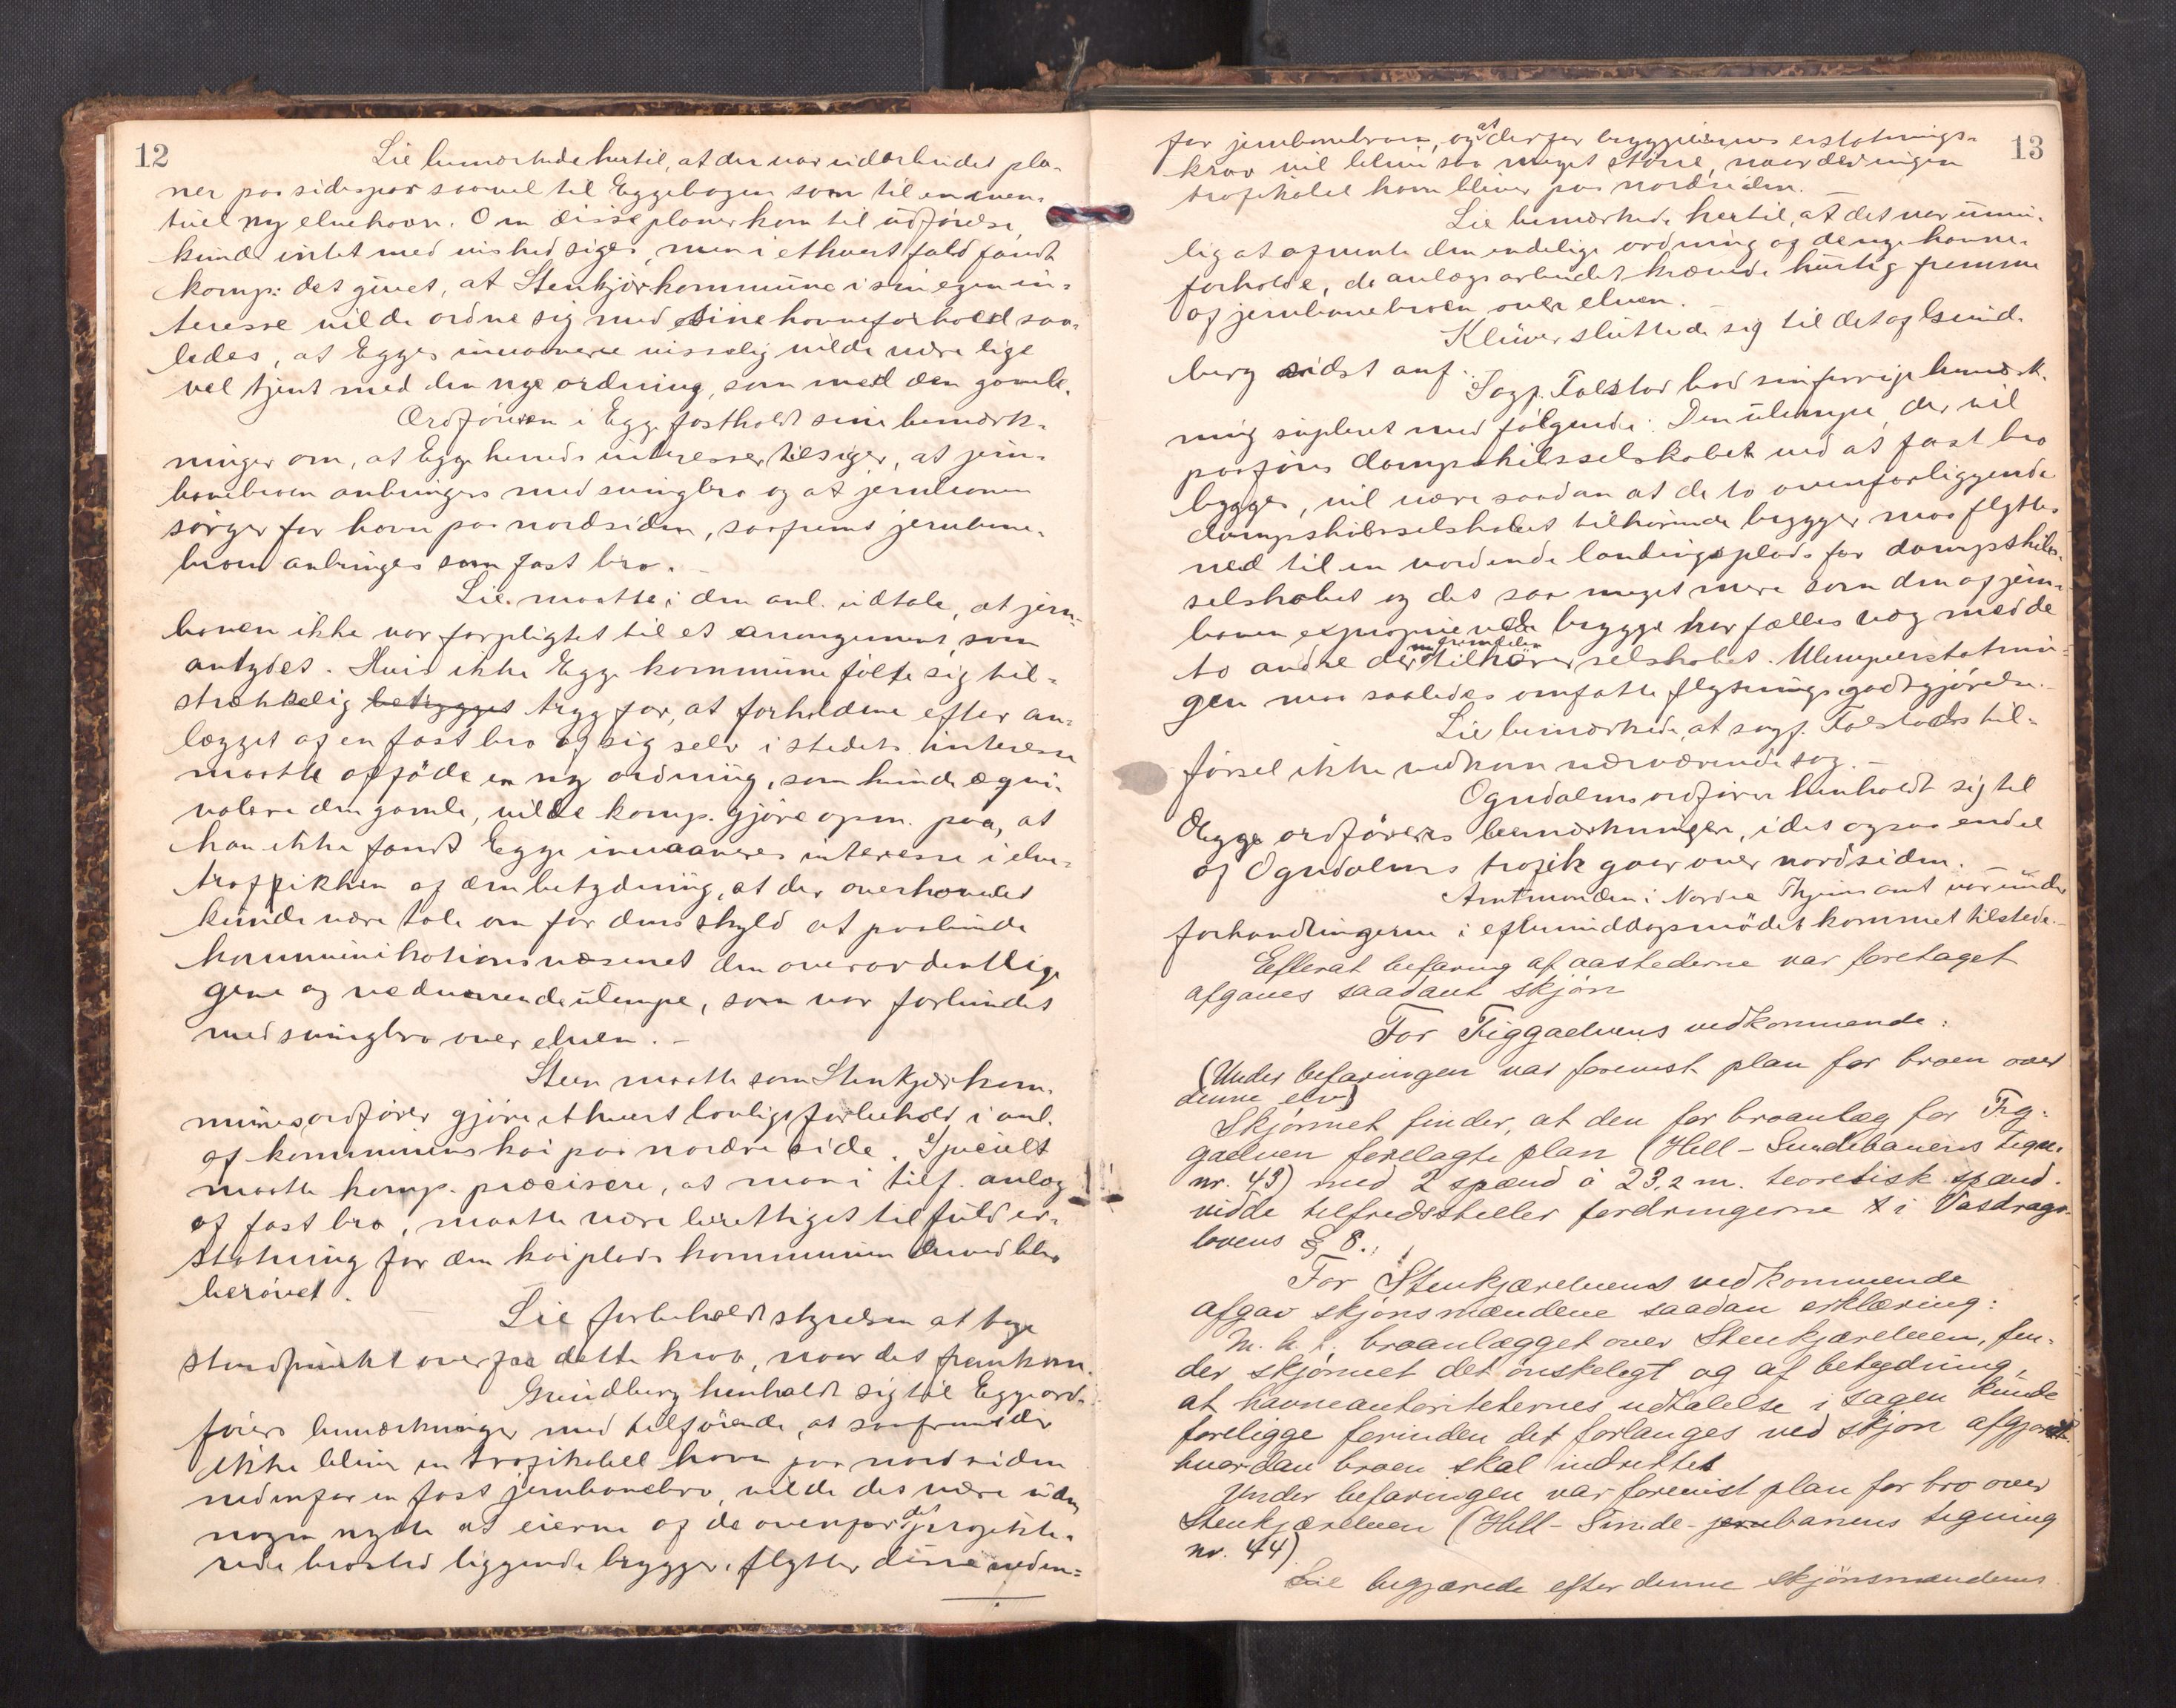 12
Lie bemærkede hertil, at der var udarbeidet pla-
ner paa sidespor saavel til Eggebogen som til en even-
tuel ny elvehavn. Om disse planer kom til udførelse,
kunde intet med vished siges, men i ethvert fald fandt
komp: det givet, at Stenkjær kommune i sin egen in-
teresse vilde ordne sig med sine havneforhold saa-
ledes, at Egges invaanere visselig vilde være lige
vel tjent med den nye ordning, som med den gamle.
Ordføreren i Egge fastholdt sine bemærk-
ninger om, at Egge herreds interesser tilsiger, at jern-
banebroen anbringes med svingbro og at jernbanen
sørger for havn paa nordsiden, saafremt jernbane-
broen anbringes som fast bro. –
Lie maatte i den anl. udtale, at jern-
banen ikke var forpligtet til et arrangement, som
antydet. Hvis ikke Egge kommune følte sig til-
strækkelig betrygget tryg for, at forholdene efter an-
lægget af en fast bro af sig selv i stedets interesse
maatte afføde en ny ordning, som kunde æqui-
valere den gamle, vilde komp. gjøre opm. paa, at
han ikke fandt Egge invaaneres interesse i elve-
traffikken af den betydning, at der overhovedet
kunde være tale om for dens skyld at paabinde
kommunikationsvæsenet den overordentlige
gene og vedvarende ulempe, som var forbundet
med svingbro over elven. –
Steen maatte som Stenkjær kom-
munes ordfører gjøre ethvert lovligt forbehold i anl.
af kommunens kai paa nordre side. Specielt
maatte komp. præcisere, at man i tilf. anlæg
af fast bro, maatte være berettiget til fuld er-
statning for den kaiplads kommunen derved blev
berøvet. –
Lie forbeholdt styrelsen at tage
standpunkt overfor dette krav, naar det fremkom.
Grundberg henholdt sig til Egge ord-
førers bemærkninger med tilføiende, at saafremt der
ikke bliver en trafikabel havn paa nordsiden
nedenfor en fast jernbanebro, vilde det være uden
nogen nytte at eierne af de ovenfor det projekte-
rede brosted liggende brygger, flytter disse neden-
13
for jernbanebroen, og at derfor bryggeeiernes erstatnings-
krav vil blive saa meget større, naar der ingen
trafikabel havn bliver paa nordsiden. –
Lie bemærkede hertil, at det var umu-
lig at afvente den endelige ordning af de nye havne-
forholde, da anlægsarbeidet krævede hurtig fremme
af jernbanebroen over elven. –
Klüver sluttede sig til det af
berg sidst anf.
Sagf. Falstad bad sin forrige bemærk-
ning supleret med følgende: Den ulempe, der vil
paaføres dampskibsselskabet ved at fast bro
bygges, vil være saadan at de to ovenforliggende
dampskibsselskabet tilhørende brygger maa flyttes
ned til en vordende landingsplads for dampskibs-
selskabet og det saa meget mere som den af jern-
banen exproprierede brygge har fælles væg med de
to andre der tilhører selskabet. Ulempeerstatnin-
gen maa saaledes omfatte flytningsgodtgjørelse. –
Lie bemærkede, at sagf. Falstads til-
førsel ikke vedkom nærværende sag. –
Ogndalens ordfører henholdt sig til
Egge ordførers bemærkninger, idet ogsaa endel
af Ogndalens trafik gaar over nordsiden. –
Amtmanden i Nordre Thjems amt var under
forhandlingerne i eftermiddagsmødet kommet tilstede. –
Efterat befaring af aastederne var foretaget
afgaves saadant skjøn
For Figgaelvens vedkommende:
(Under befaringen var forevist plan for broen over
denne elv)
Skjønnet finder, at den for broanlæg for Fig-
gaelven forelagte plan (Hell-Sundebanens tegn.
nr. 43) med 2 spænd à 23,2 m. teoretisk spænd-
vidde tilfredsstiller fordringerne i Vasdrags-
lovens § 8.
For Stenkjærelvens vedkommende
afgav skjønsmændene saadan erklæring:
M. h. t. broanlægget over Stenkjærelven, fin-
der skjønnet det ønskeligt og af betydning,
at havneautoriteternes udtalelse i sagen kunde
foreligge forinden det forlanges ved skjøn afgjort
hvordan broen skal indrettes
Under befaringen var forevist plan for bro over
Stenkjærelven (Hell-Sunde-jernbanens tegning
nr. 44)
Lie begjærede efter denne skjønsmændenes